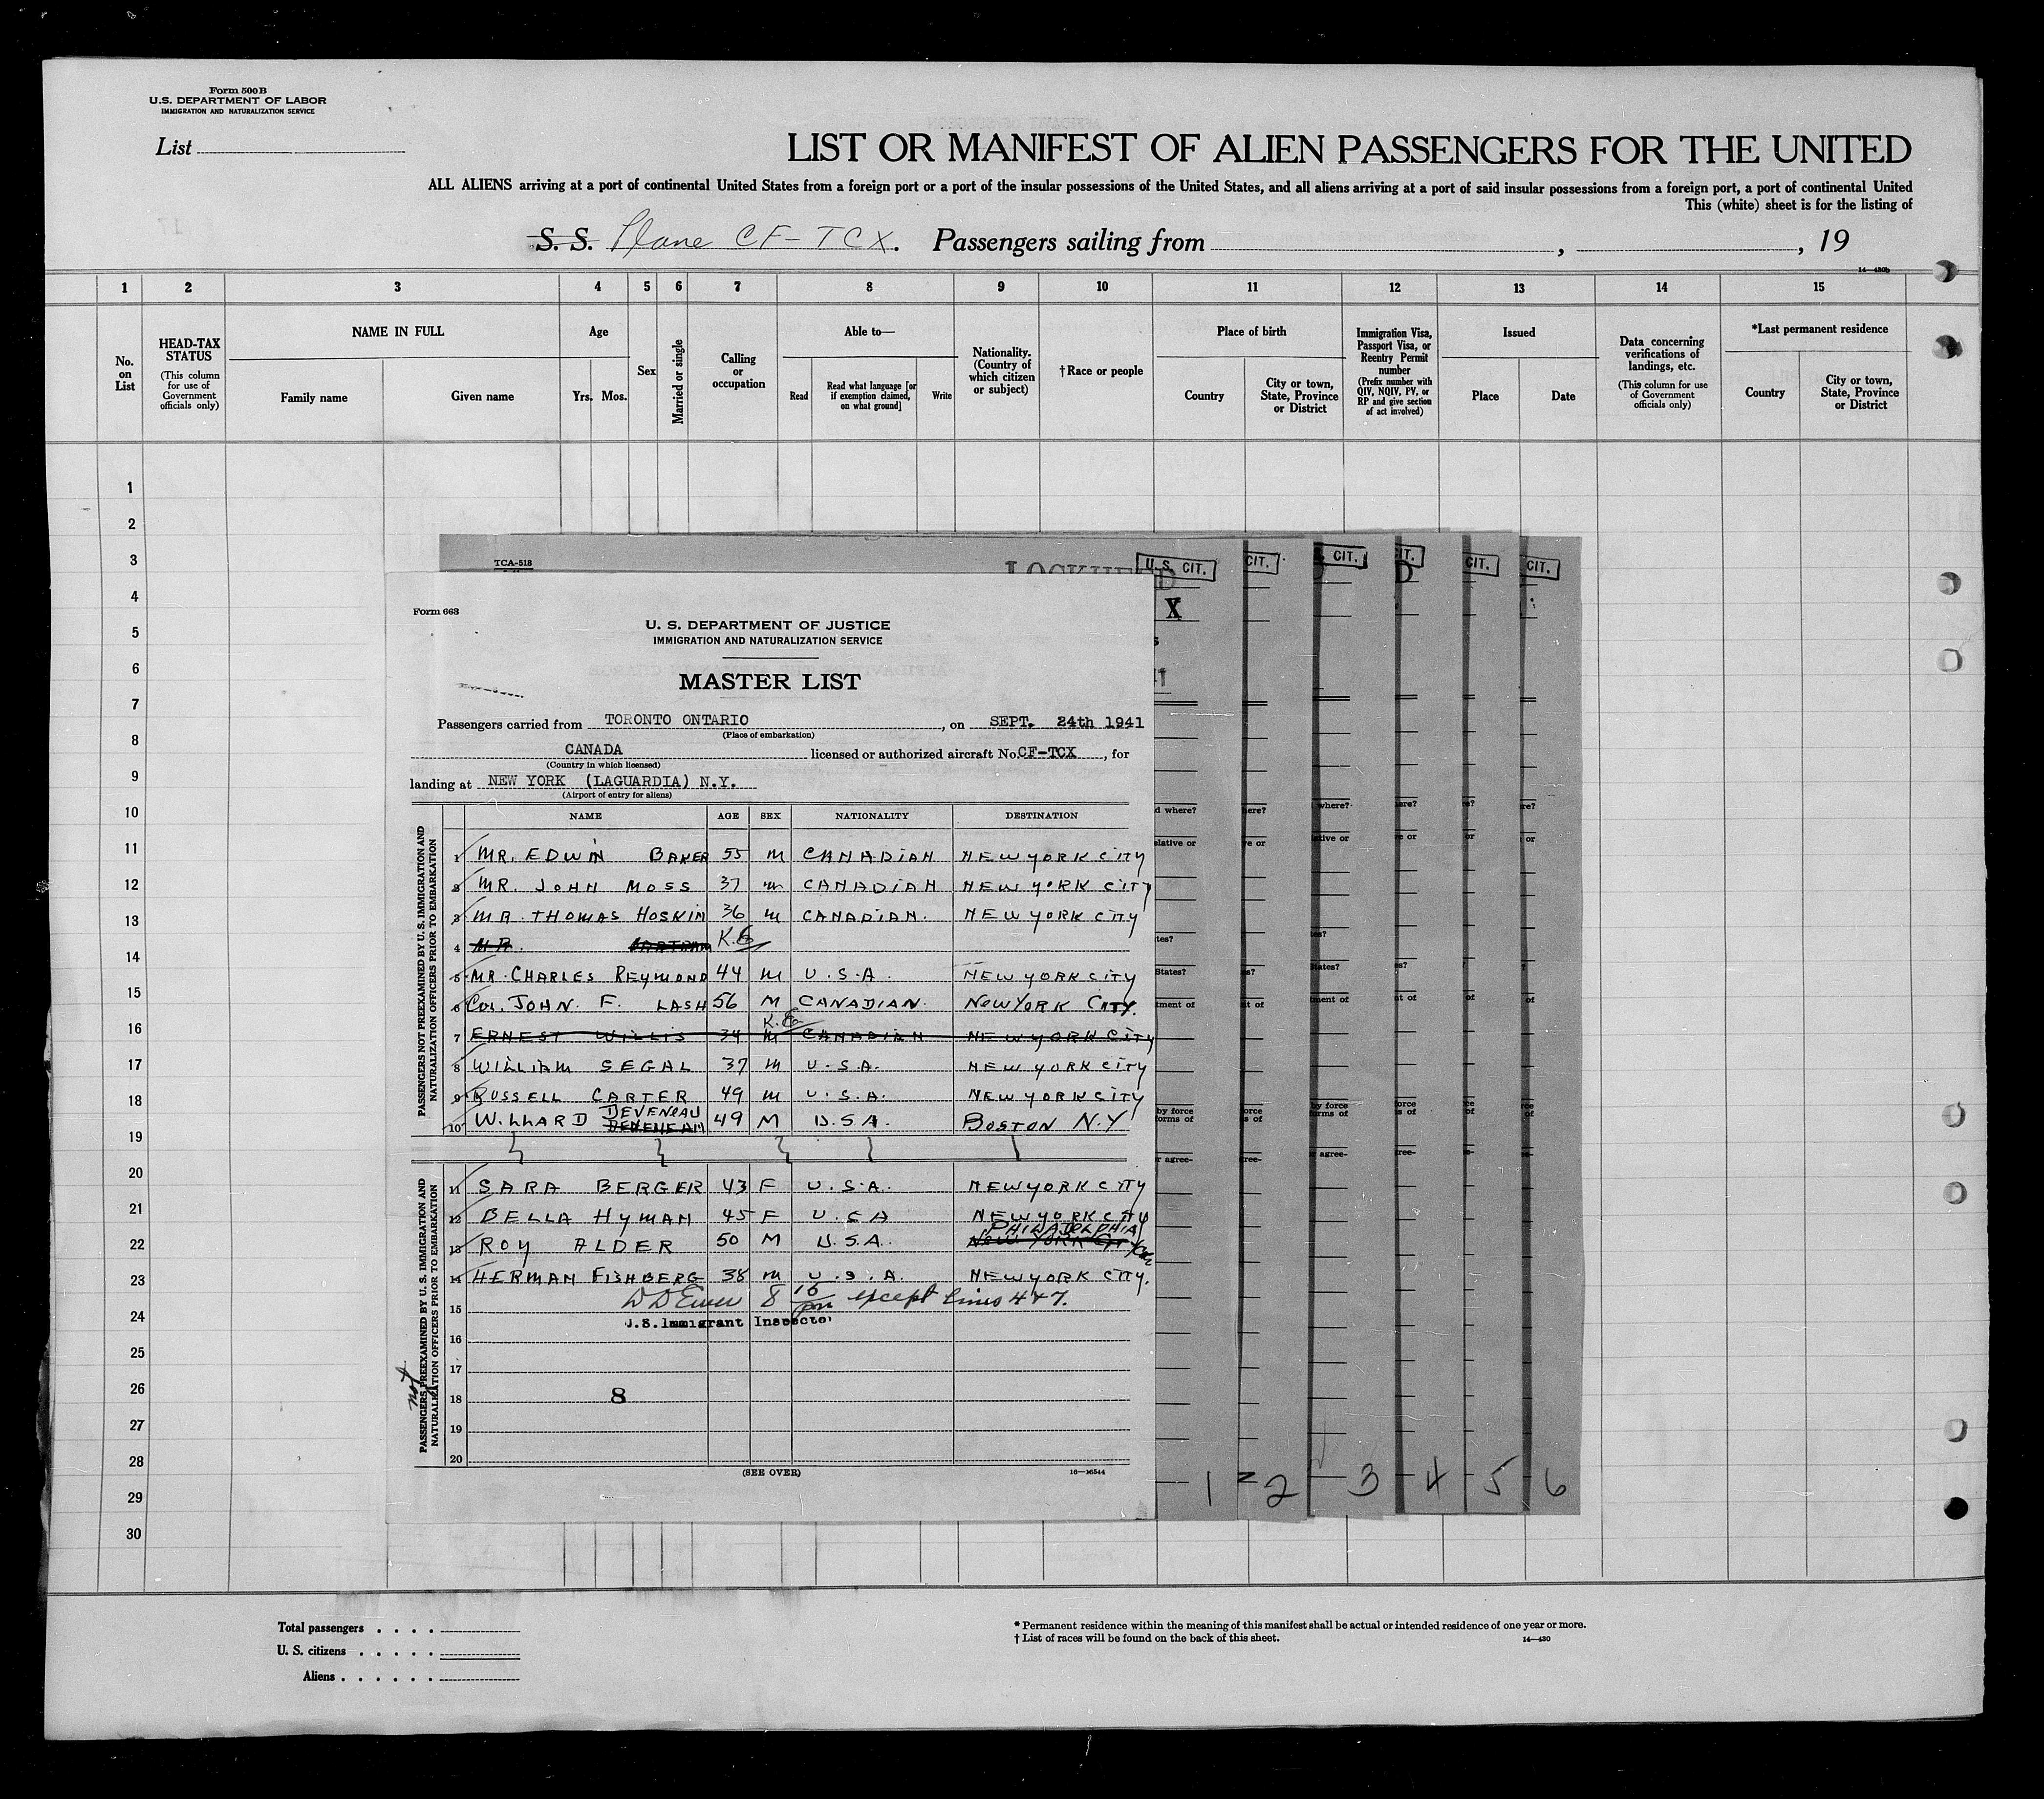 Form 500B
U.S. DEPARTMENT OF LABOR
IMMIGRATION AND NATURALIZATION SERVICE
List
LIST OR MANIFEST OF ALIEN PASSENGERS FOR THE UNITED
ALL ALIENS arriving at a port of continental United States from a foreign port or a port of the insular possessions of the United States, and all aliens arriving at a port of said insular possessions from a foreign port, a port of continental United
This (white) sheet is for the listing of
S. S. Plane CF-TCX. Passengers sailing from , , 19
14—430b
1 2 3 4 5 6 7 8 9 10 11 12 13 14 15
No. on List
HEAD-TAX STATUS
(This column for use of Government officials only)
NAME IN FULL
Family name Given name
Age
Yrs. Mos.
Sex
Married or single
Calling or occupation
Able to—
Read
Read what language [or if exemption claimed, on what ground]
Write
Nationality. (Country of which citizen or subject)
†Race or people
Place of birth
Country
City or town, State, Province or District
Immigration Visa, Passport Visa, or Reentry Permit number
(Prefix number with QIV, NQIV, PV, or RP and give section of act involved)
Issued
Place Date
Data concerning verifications of landings, etc.
(This column for use of Government officials only)
*Last permanent residence
Country
City or town, State, Province or District
1
2
3
4
5
6
7
8
9
10
11
12
13
14
15
16
17
18
19
20
21
22
23
24
25
26
27
28
29
30
TCA-518
U.S. CIT. CIT. CIT. IT. CIT. CIT.
X
Form 663
U. S. DEPARTMENT OF JUSTICE
IMMIGRATION AND NATURALIZATION SERVICE
MASTER LIST
Passengers carried from TORONTO ONTARIO, on SEPT. 24th 1941
(Place of embarkation)
CANADA licensed or authorized aircraft No. CF-TCX, for
(Country in which licensed)
landing at NEW YORK (LAGUARDIA) N.Y.
(Airport of entry for aliens)
NAME AGE SEX NATIONALITY DESTINATION
PASSENGERS NOT PREEXAMINED BY U. S. IMMIGRATION AND NATURALIZATION OFFICERS PRIOR TO EMBARKATION
1 MR. EDWIN BAKER 55 M CANADIAN NEW YORK CITY
2 MR. JOHN MOSS 37 M CANADIAN NEW YORK CITY
3 MR. THOMAS HOSKIN 36 M CANADIAN. NEW YORK CITY
4 MR. K.E
5 MR. CHARLES REYMOND 44 M U.S.A. NEW YORK CITY
6 COL. JOHN F. LASH 56 M CANADIAN. NEW YORK CITY.
K.E
7 ERNEST WILLIS 34 M CANADIAN NEW YORK CITY
8 WILLIAM SEGAL 37 M U.S.A. NEW YORK CITY
9 RUSSELL CARTER 49 M U.S.A. NEW YORK CITY
DEVENEAU
10 WILLARD 49 M U.S.A. BOSTON N.Y
PASSENGERS PREEXAMINED BY U. S. IMMIGRATION AND NATURALIZATION OFFICERS PRIOR TO EMBARKATION
not
11 SARA BERGER 43 F U.S.A. NEW YORK CITY
12 BELLA HYMAN 45 F U.S.A NEW YORK CITY
PHILADELPHIA
13 ROY ALDER 50 M U.S.A. NEW YORK CITY
14 HERMAN FISHBERG 38 M U.S.A. NEW YORK CITY.
8 10 pm except lines 4 & 7.
15
U.S. Immigrant Inspector
16
17
18 8
19
20
(SEE OVER)
16—16544
d where? here? where? ere? e? re?
elative or ve or ative or e or or or
tes? es?
States? s? States? s? ? ?
tment of t of ment of t of of of
by force orms of orce s of by force orms of force s of ce of rce of
r agree- ree- agree- ree- e- e-
1 2 3 4 5 6
Total passengers . . . .
U. S. citizens . . . . .
Aliens . . . . . .
* Permanent residence within the meaning of this manifest shall be actual or intended residence of one year or more.
† List of races will be found on the back of this sheet.
14—430